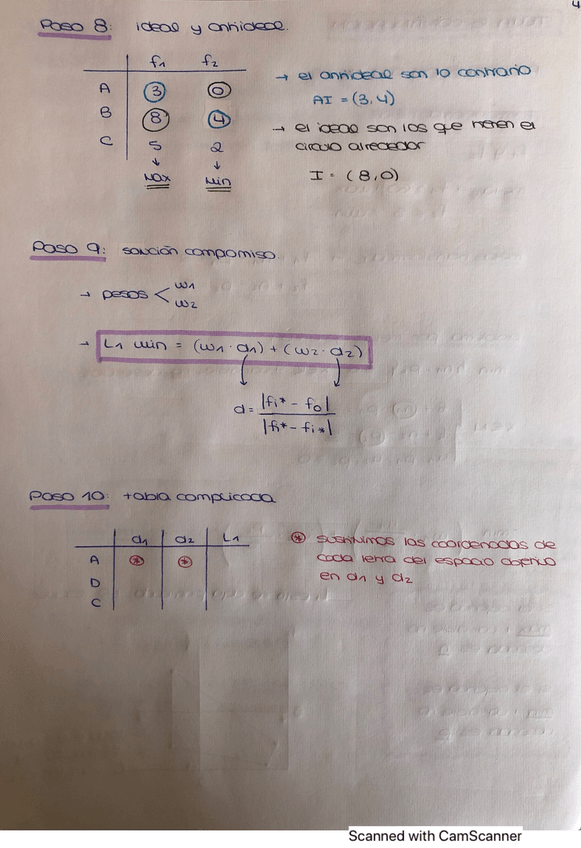 4
Paso 8: ideal y antiideal.
f1 f2
A 3 0
B 8 4
C 5 2
↓ ↓
Max Min
→ el antiideal son lo contrario
AI = (3,4)
→ el ideal son los que tienen el
circulo alrededor
I = (8,0)
Paso 9: solución compomiso
→ pesos < w1
w2
→ L1 min = (w1 · d1) + (w2 · d2)
d = |fi* - fo|
|fi* - fi*|
Paso 10: tabla complicada
d1 d2 L1
A * *
D
C
* sustituimos las coordenadas de
cada letra del espacio objetivo
en d1 y d2
Scanned with CamScanner